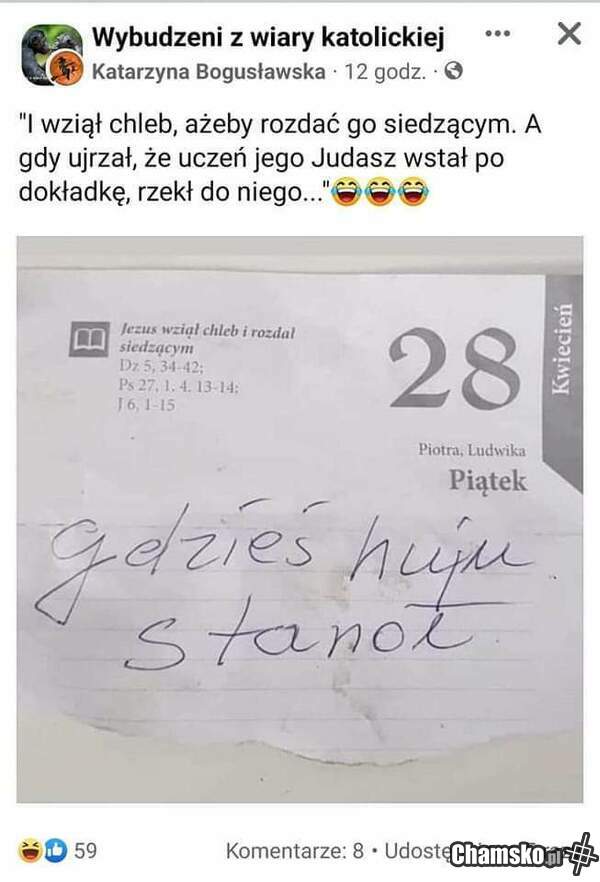 Wybudzeni z wiary katolickiej
Katarzyna Bogusławska · 12 godz. ·
"I wziął chleb, ażeby rozdać go siedzącym. A
gdy ujrzał, że uczeń jego Judasz wstał po
dokładkę, rzekł do niego..."😂😂😂
Jezus wziął chleb i rozdał
siedzącym
Dz 5, 34-42;
Ps 27, 1. 4. 13-14;
J 6, 1-15
28
Kwiecień
Piotra, Ludwika
Piątek
gdzieś huju
stanoł
59
Komentarze: 8 •
Chamsko.pl